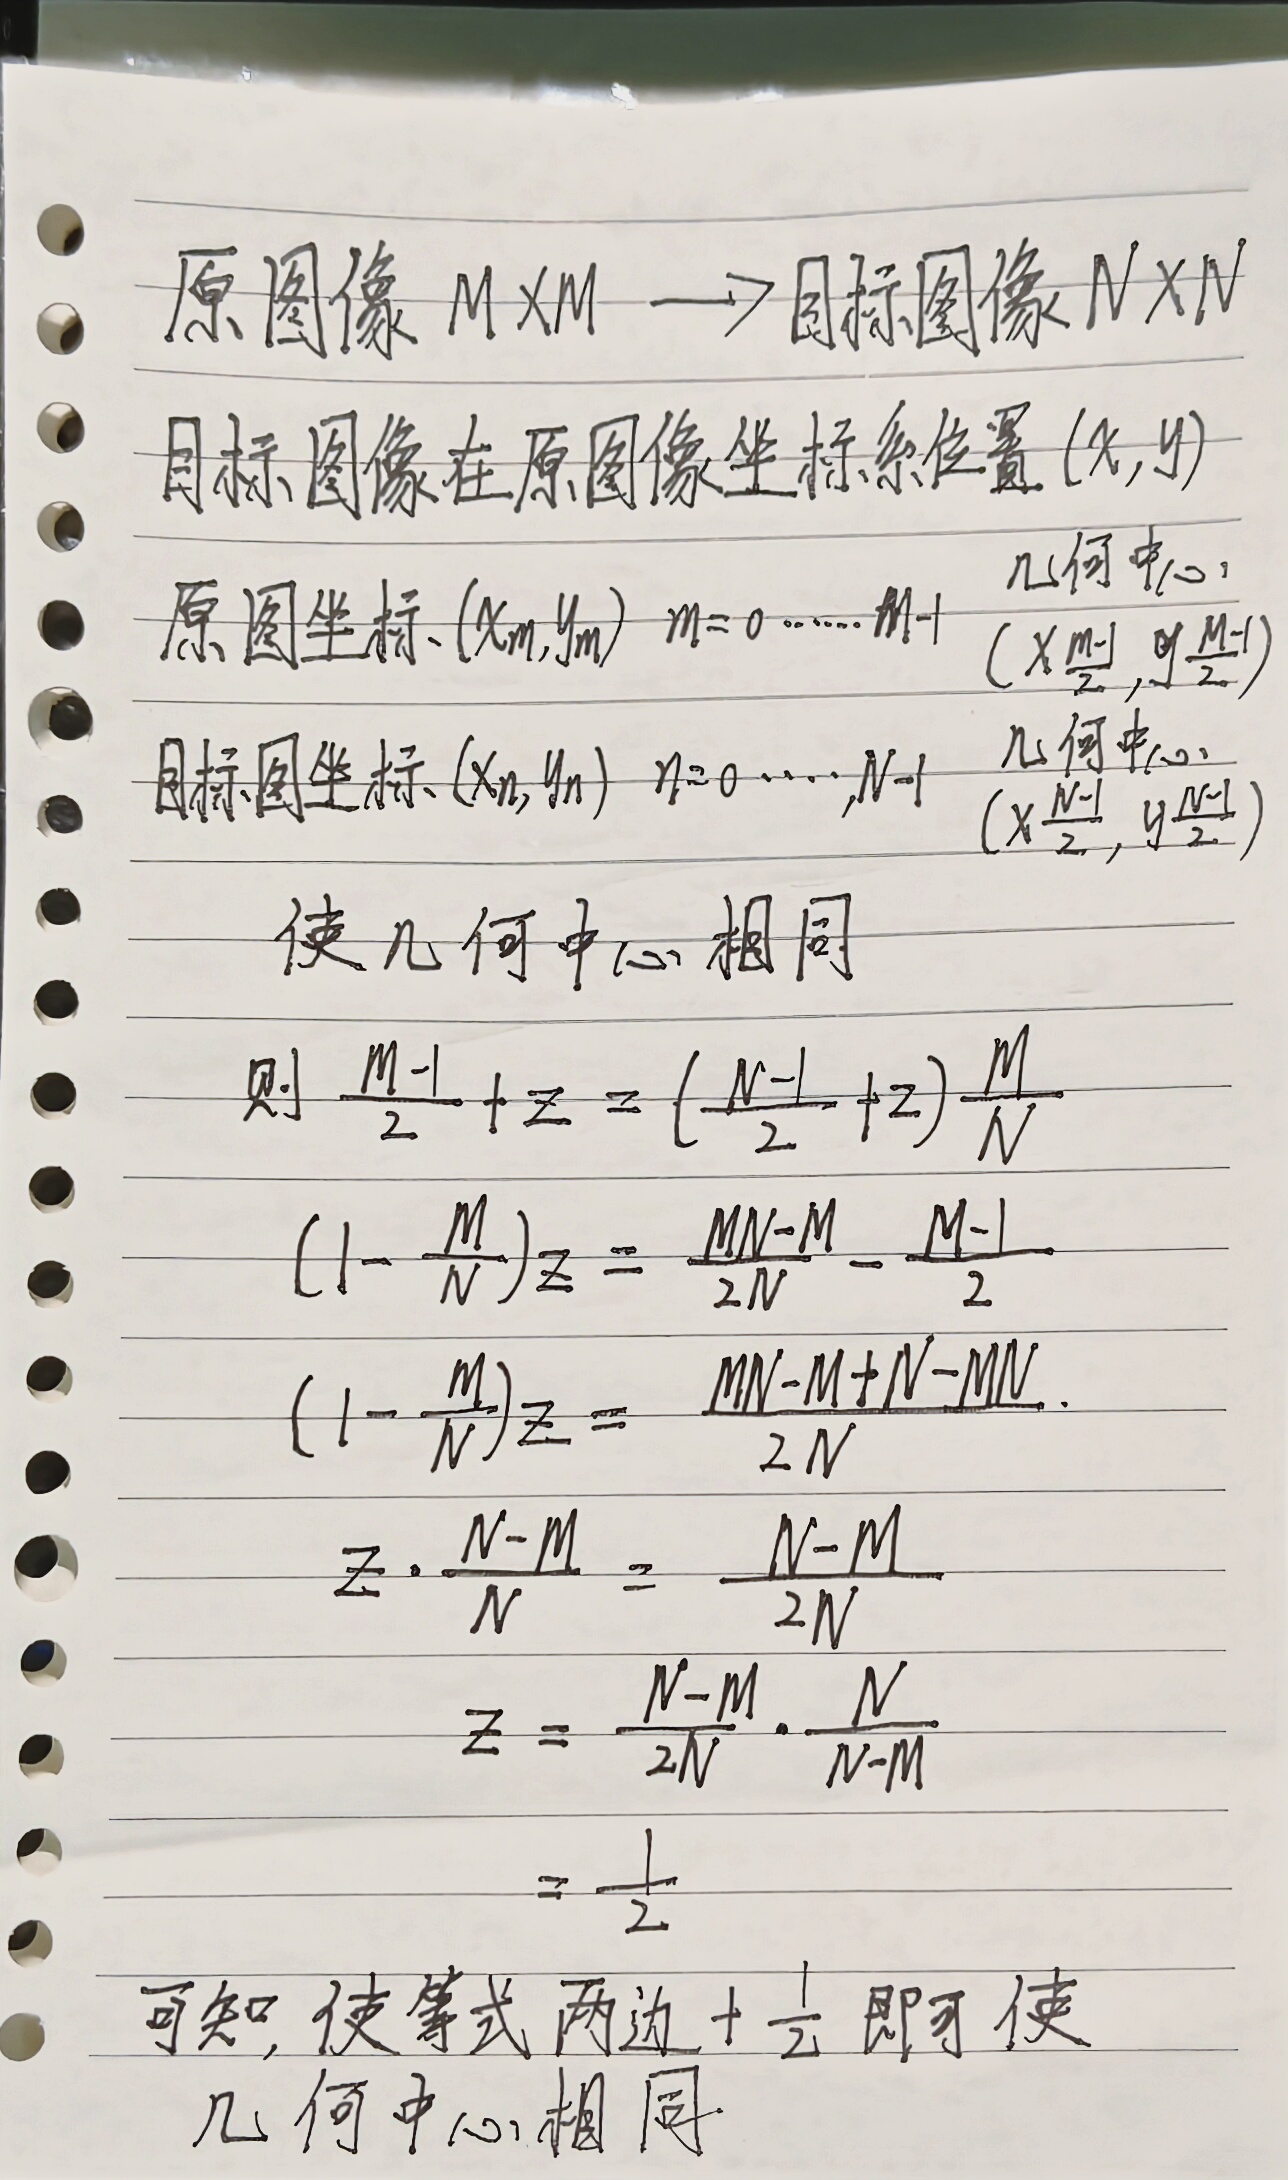 原图像 M×M → 目标图像 N×N
目标图像在原图像坐标系位置 (x, y)
原图坐标 (x_m, y_m) m=0……M-1 几何中心 (x_{\frac{M-1}{2}}, y_{\frac{M-1}{2}})
目标图坐标 (x_n, y_n) n=0……, N-1 几何中心 (x_{\frac{N-1}{2}}, y_{\frac{N-1}{2}})
使几何中心相同
则 \frac{M-1}{2} + z = (\frac{N-1}{2} + z) \frac{M}{N}
(1 - \frac{M}{N}) z = \frac{MN-M}{2N} - \frac{M-1}{2}
(1 - \frac{M}{N}) z = \frac{MN-M+N-MN}{2N}.
z · \frac{N-M}{N} = \frac{N-M}{2N}
z = \frac{N-M}{2N} · \frac{N}{N-M}
= \frac{1}{2}
可知, 使等式两边 + \frac{1}{2} 即可使
几何中心相同